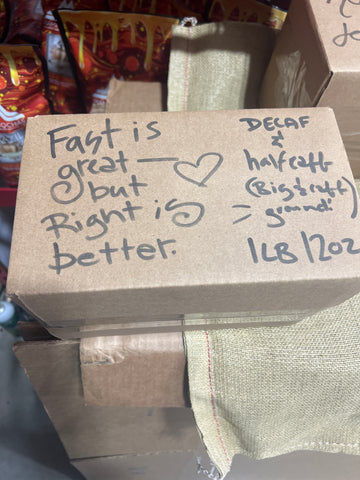 Fast is
great —
but
Right is
better.
DECAF
&
half caff
(Big ½ caff)
ground!
1LB/2oz